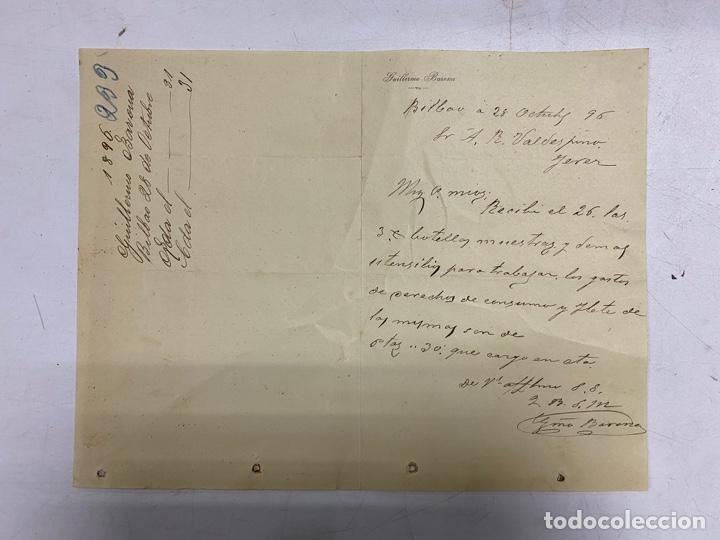 1896 233
Guillermo Barona
Bilbao 28 de Octubre
Rda el 31
Cda el 31
Guillermo Barona
Bilbao a 28 Octub 96
Sr A. R. Valdespino
Jerez
Muy S. mio;
Recibi el 26. las
3 botellas muestras y demas
utensilios para trabajar, los gastos
de derechos de consumo y flete de
las mismas son de
Ptas 30. que cargo en cta.
de Vd. affmo S. S.
Q. B. S. M
Gmo Barona
todocoleccion
todocoleccion.net